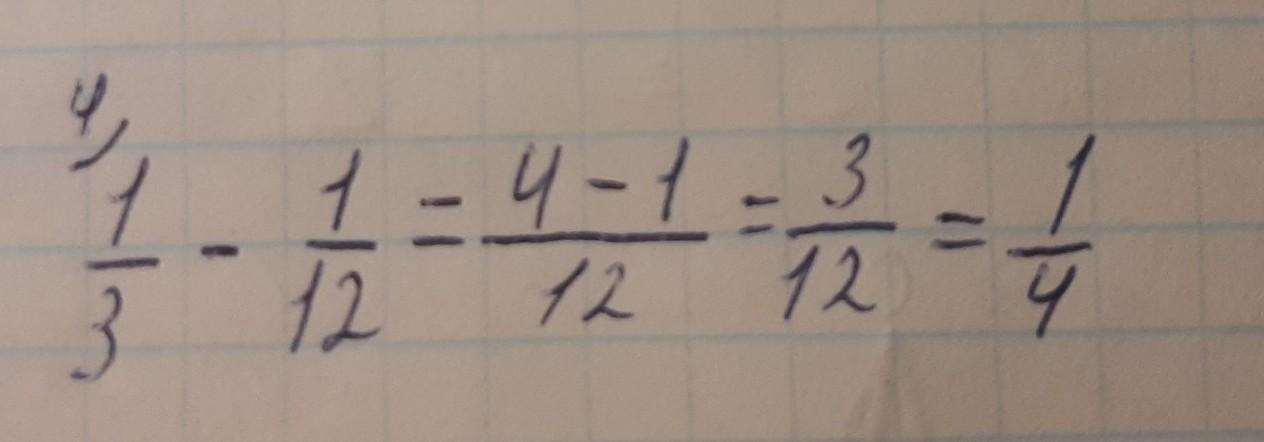 4/
1/3 - 1/12 = 4-1/12 = 3/12 = 1/4